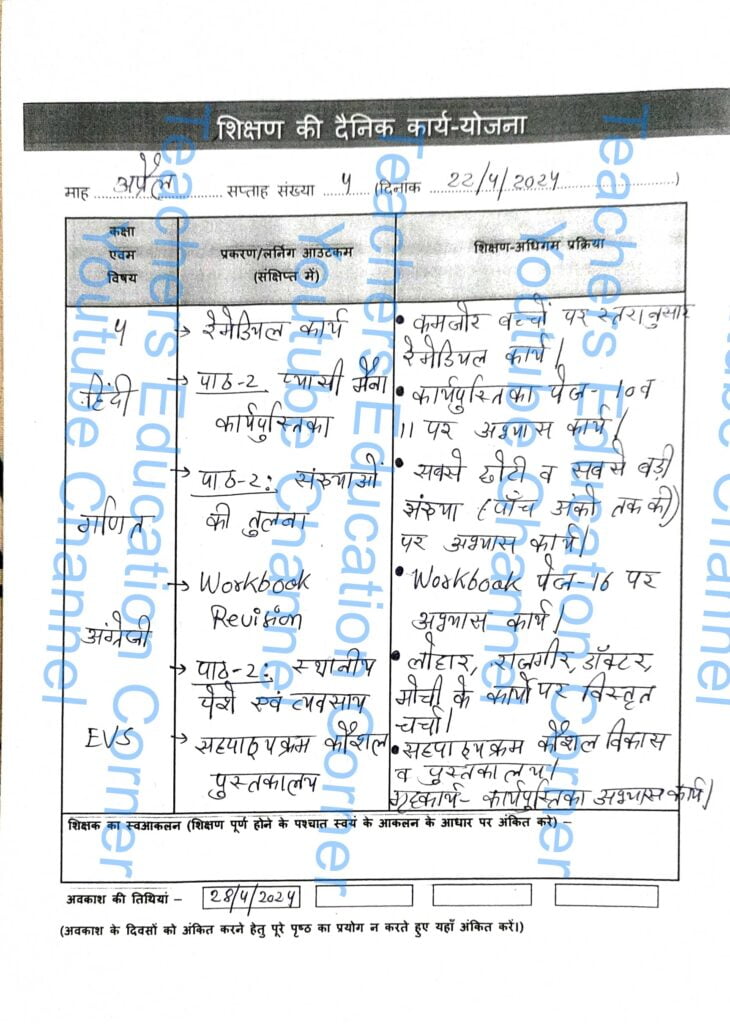 शिक्षण की दैनिक कार्य-योजना
माह अप्रैल सप्ताह संख्या 4 (दिनांक 22/4/2024)
कक्षा एवम विषय
प्रकरण/लर्निंग आउटकम (संक्षिप्त में)
शिक्षण-अधिगम प्रक्रिया
5
→ रेमेडियल कार्य
• कमजोर बच्चों पर स्तरानुसार
रेमेडियल कार्य।
हिंदी
→ पाठ-2 प्यासी मैना
कार्यपुस्तिका
• कार्यपुस्तिका पेज- 10 व
11 पर अभ्यास कार्य।
गणित
→ पाठ-2: संख्याओं
की तुलना
• सबसे छोटी व सबसे बड़ी
संख्या (पाँच अंको तक की)
पर अभ्यास कार्य।
अंग्रेजी
→ Workbook
Revision
• Workbook पेज-16 पर
अभ्यास कार्य।
EVS
→ पाठ-2: स्थानीय
पेशे एवं व्यवसाय
• लोहार, राजगीर, डॉक्टर,
मोची के कार्यो पर विस्तृत
चर्चा।
→ सहपाठ्यक्रम कौशल
पुस्तकालय
• सहपाठ्यक्रम कौशल विकास
व पुस्तकालय।
गृहकार्य- कार्यपुस्तिका अभ्यास कार्य।
शिक्षक का स्वआकलन (शिक्षण पूर्ण होने के पश्चात स्वयं के आकलन के आधार पर अंकित करे) –
अवकाश की तिथियां – 28/4/2024
(अवकाश के दिवसों को अंकित करने हेतु पूरे पृष्ठ का प्रयोग न करते हुए यहाँ अंकित करें।)
Teachers Education Corner
Youtube Channel
Teachers Education Corner
Youtube Channel
Teachers Education Corner
Youtube Channel